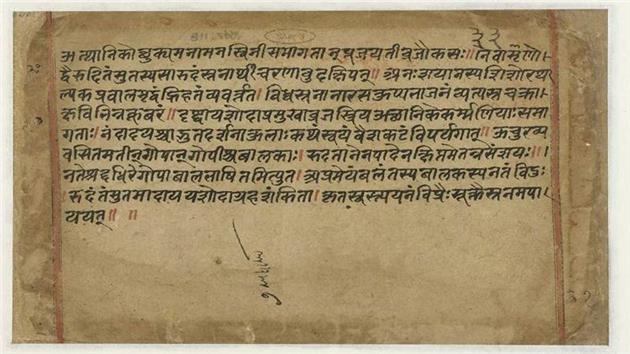 ३३
औत्थानिकौत्सुक्यमनामनस्विनीसमागतान्पूजयतीव्रजौकसः॥ नैवाशृणो
द्वैरुदितंसुतस्यसारुदंस्तनार्थीचरणावुदक्षिपत्॥ अधःशयानस्यशिशोरथा
ल्पकप्रवालमृद्वंघ्रिहतंव्यवर्त्तत। विध्वस्तनानारसकुप्यभाजनंव्यत्यस्तचक्रा
क्षविभिन्नकूबरं॥ दृष्ट्वायशोदाप्रमुखाव्रजस्त्रियऔत्थानिकेकर्मणियाःसमा
गताः। नंदादयश्चाद्भुतदर्शनाकुलाःकथंस्वयंवैशकटंविपर्यगात्॥ ऊचुरव्य
वसितमतीन्गोपान्गोपीश्चबालकाः। रुदतानेनपादेनक्षिप्तमेतन्नसंशयः॥
नतेश्रद्दधिरेगोपाबालभाषितमित्युत। अप्रमेयंबलंतस्यबालकस्यनतेविदुः
।रुदंतंसुतमादाययशोदाग्रहशंकिता। कृतस्वस्त्ययनंविप्रैःसूक्तैःस्तनमपा
ययत्॥ ॥